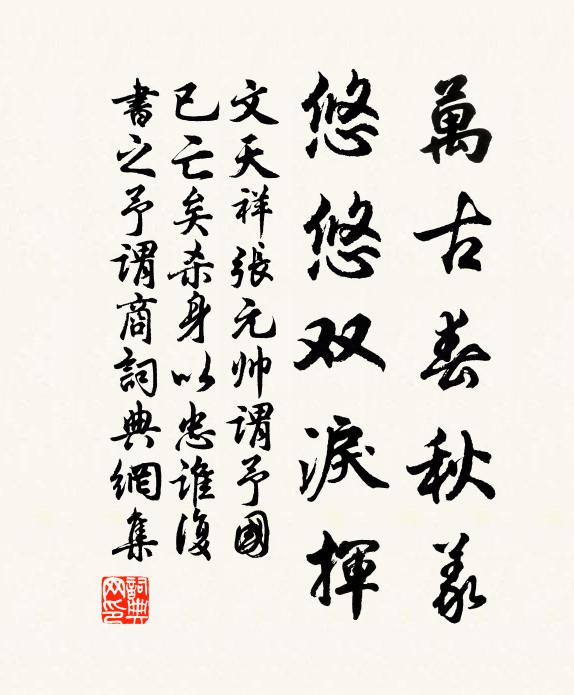 萬古春秋義
悠悠双淚揮
文天祥張元帅謂予國
已亡矣杀身以忠誰復
書之予謂商詞典網集
詞典网印